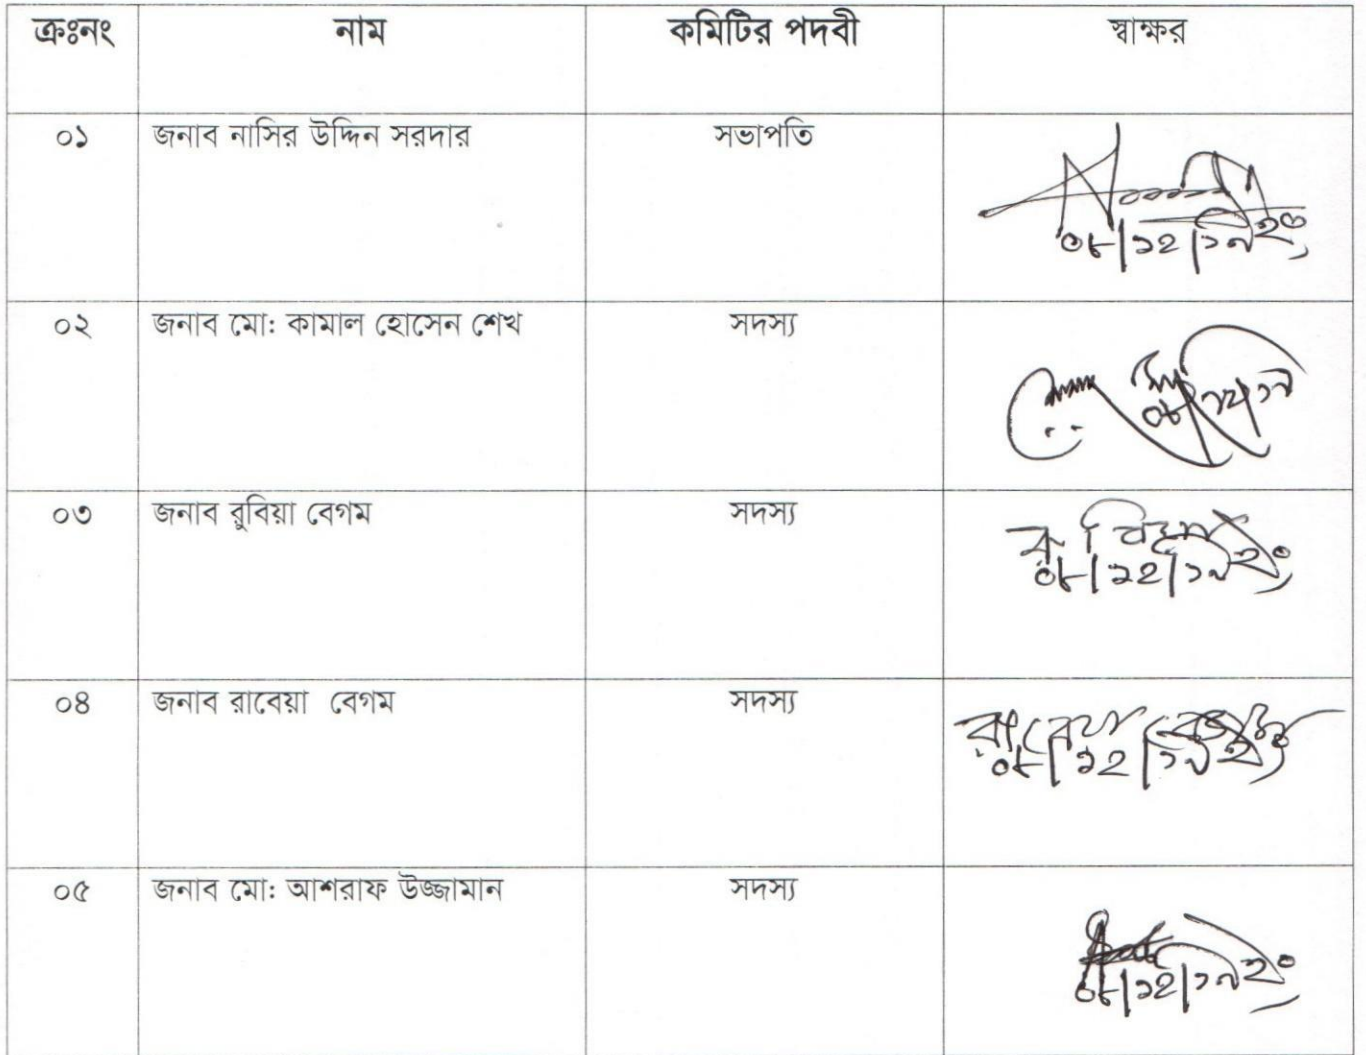 ক্রঃনং নাম কমিটির পদবী স্বাক্ষর
০১ জনাব নাসির উদ্দিন সরদার সভাপতি
০৮/১২/১৯ইং
০২ জনাব মো: কামাল হোসেন শেখ সদস্য
০৮/১২/১৯
০৩ জনাব রুবিয়া বেগম সদস্য
রুবিয়া
০৮/১২/১৯ইং
০৪ জনাব রাবেয়া বেগম সদস্য
রাবেয়া বেগম
০৮/১২/১৯ইং
০৫ জনাব মো: আশরাফ উজ্জামান সদস্য
০৮/১২/১৯ইং